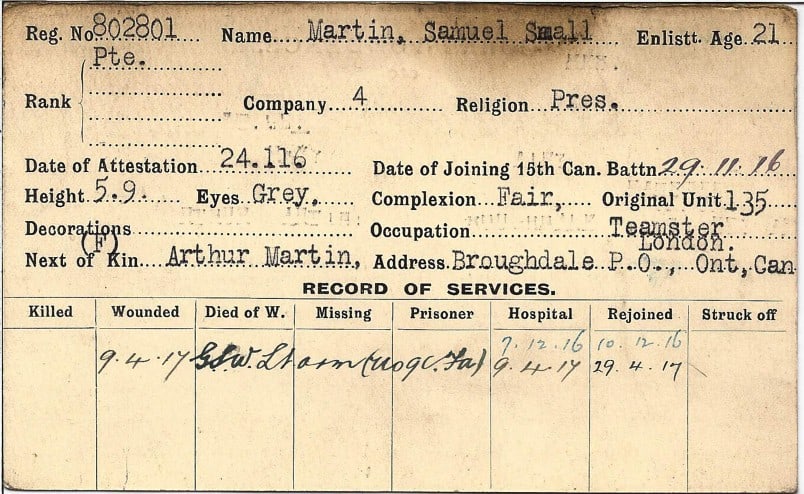 Reg. No. 802801 Name Martin, Samuel Small Enlistt. Age 21
Pte.
Rank Company 4 Religion Pres.
Date of Attestation 24.116 Date of Joining 15th Can. Battn 29.11.16
Height 5.9. Eyes Grey. Complexion Fair, Original Unit 135
Decorations Occupation Teamster
(F) London.
Next of Kin Arthur Martin, Address Broughdale P.O., Ont, Can
RECORD OF SERVICES.
Killed Wounded Died of W. Missing Prisoner Hospital Rejoined Struck off
7.12.16 10.12.16
9.4.17 GSW. Lt arm 9.4.17 29.4.17